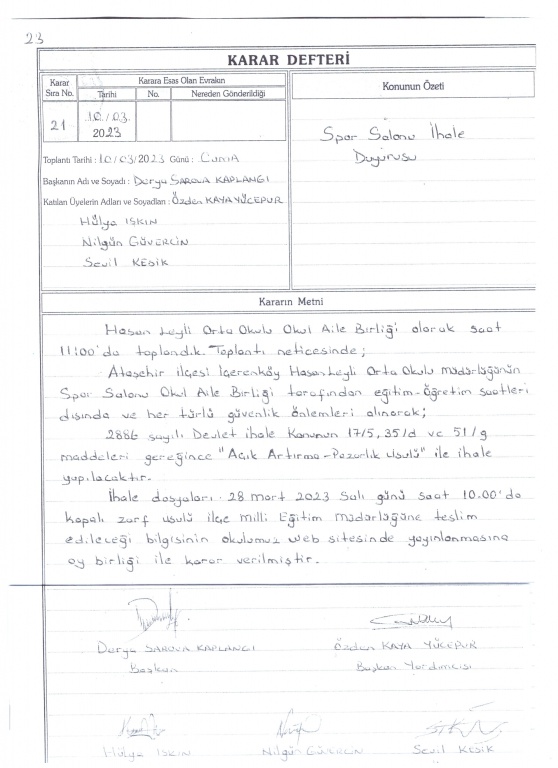 23
KARAR DEFTERİ
Karar Sıra No.
Karara Esas Olan Evrakın
Tarihi
No.
Nereden Gönderildiği
Konunun Özeti
21
10/03.
2023
Spor Salonu İhale
Duyurusu
Toplantı Tarihi : 10/03/2023 Günü : Cuma
Başkanın Adı ve Soyadı : Derya SAROVA KAPLANGI
Katılan Üyelerin Adları ve Soyadları : Özden KAYA YÜCEPUR
Hülya ISKIN
Nilgün GÜVERCİN
Sevil KESİK
Kararın Metni
Hasan Leyli Orta Okulu Okul Aile Birliği olarak saat
11:00'da toplandık. Toplantı neticesinde;
Ataşehir ilçesi İçerenköy Hasan Leyli Orta Okulu müdürlüğünün
Spor Salonu Okul Aile Birliği tarafından eğitim-öğretim saatleri
dışında ve her türlü güvenlik önlemleri alınarak;
2886 sayılı Devlet ihale Kanunun 17/5, 35/d ve 51/g
maddeleri gereğince "Açık Artırma-Pazarlık Usulü" ile ihale
yapılacaktır.
İhale dosyaları 28 mart 2023 Salı günü saat 10.00'da
kapalı zarf usulü ilçe Milli Eğitim Müdürlüğüne teslim
edileceği bilgisinin okulumuz web sitesinde yayınlanmasına
oy birliği ile karar verilmiştir.
Derya SAROVA KAPLANGI
Başkan
Özden KAYA YÜCEPUR
Başkan Yardımcısı
Hülya ISKIN
Nilgün GÜVERCİN
Sevil KESİK